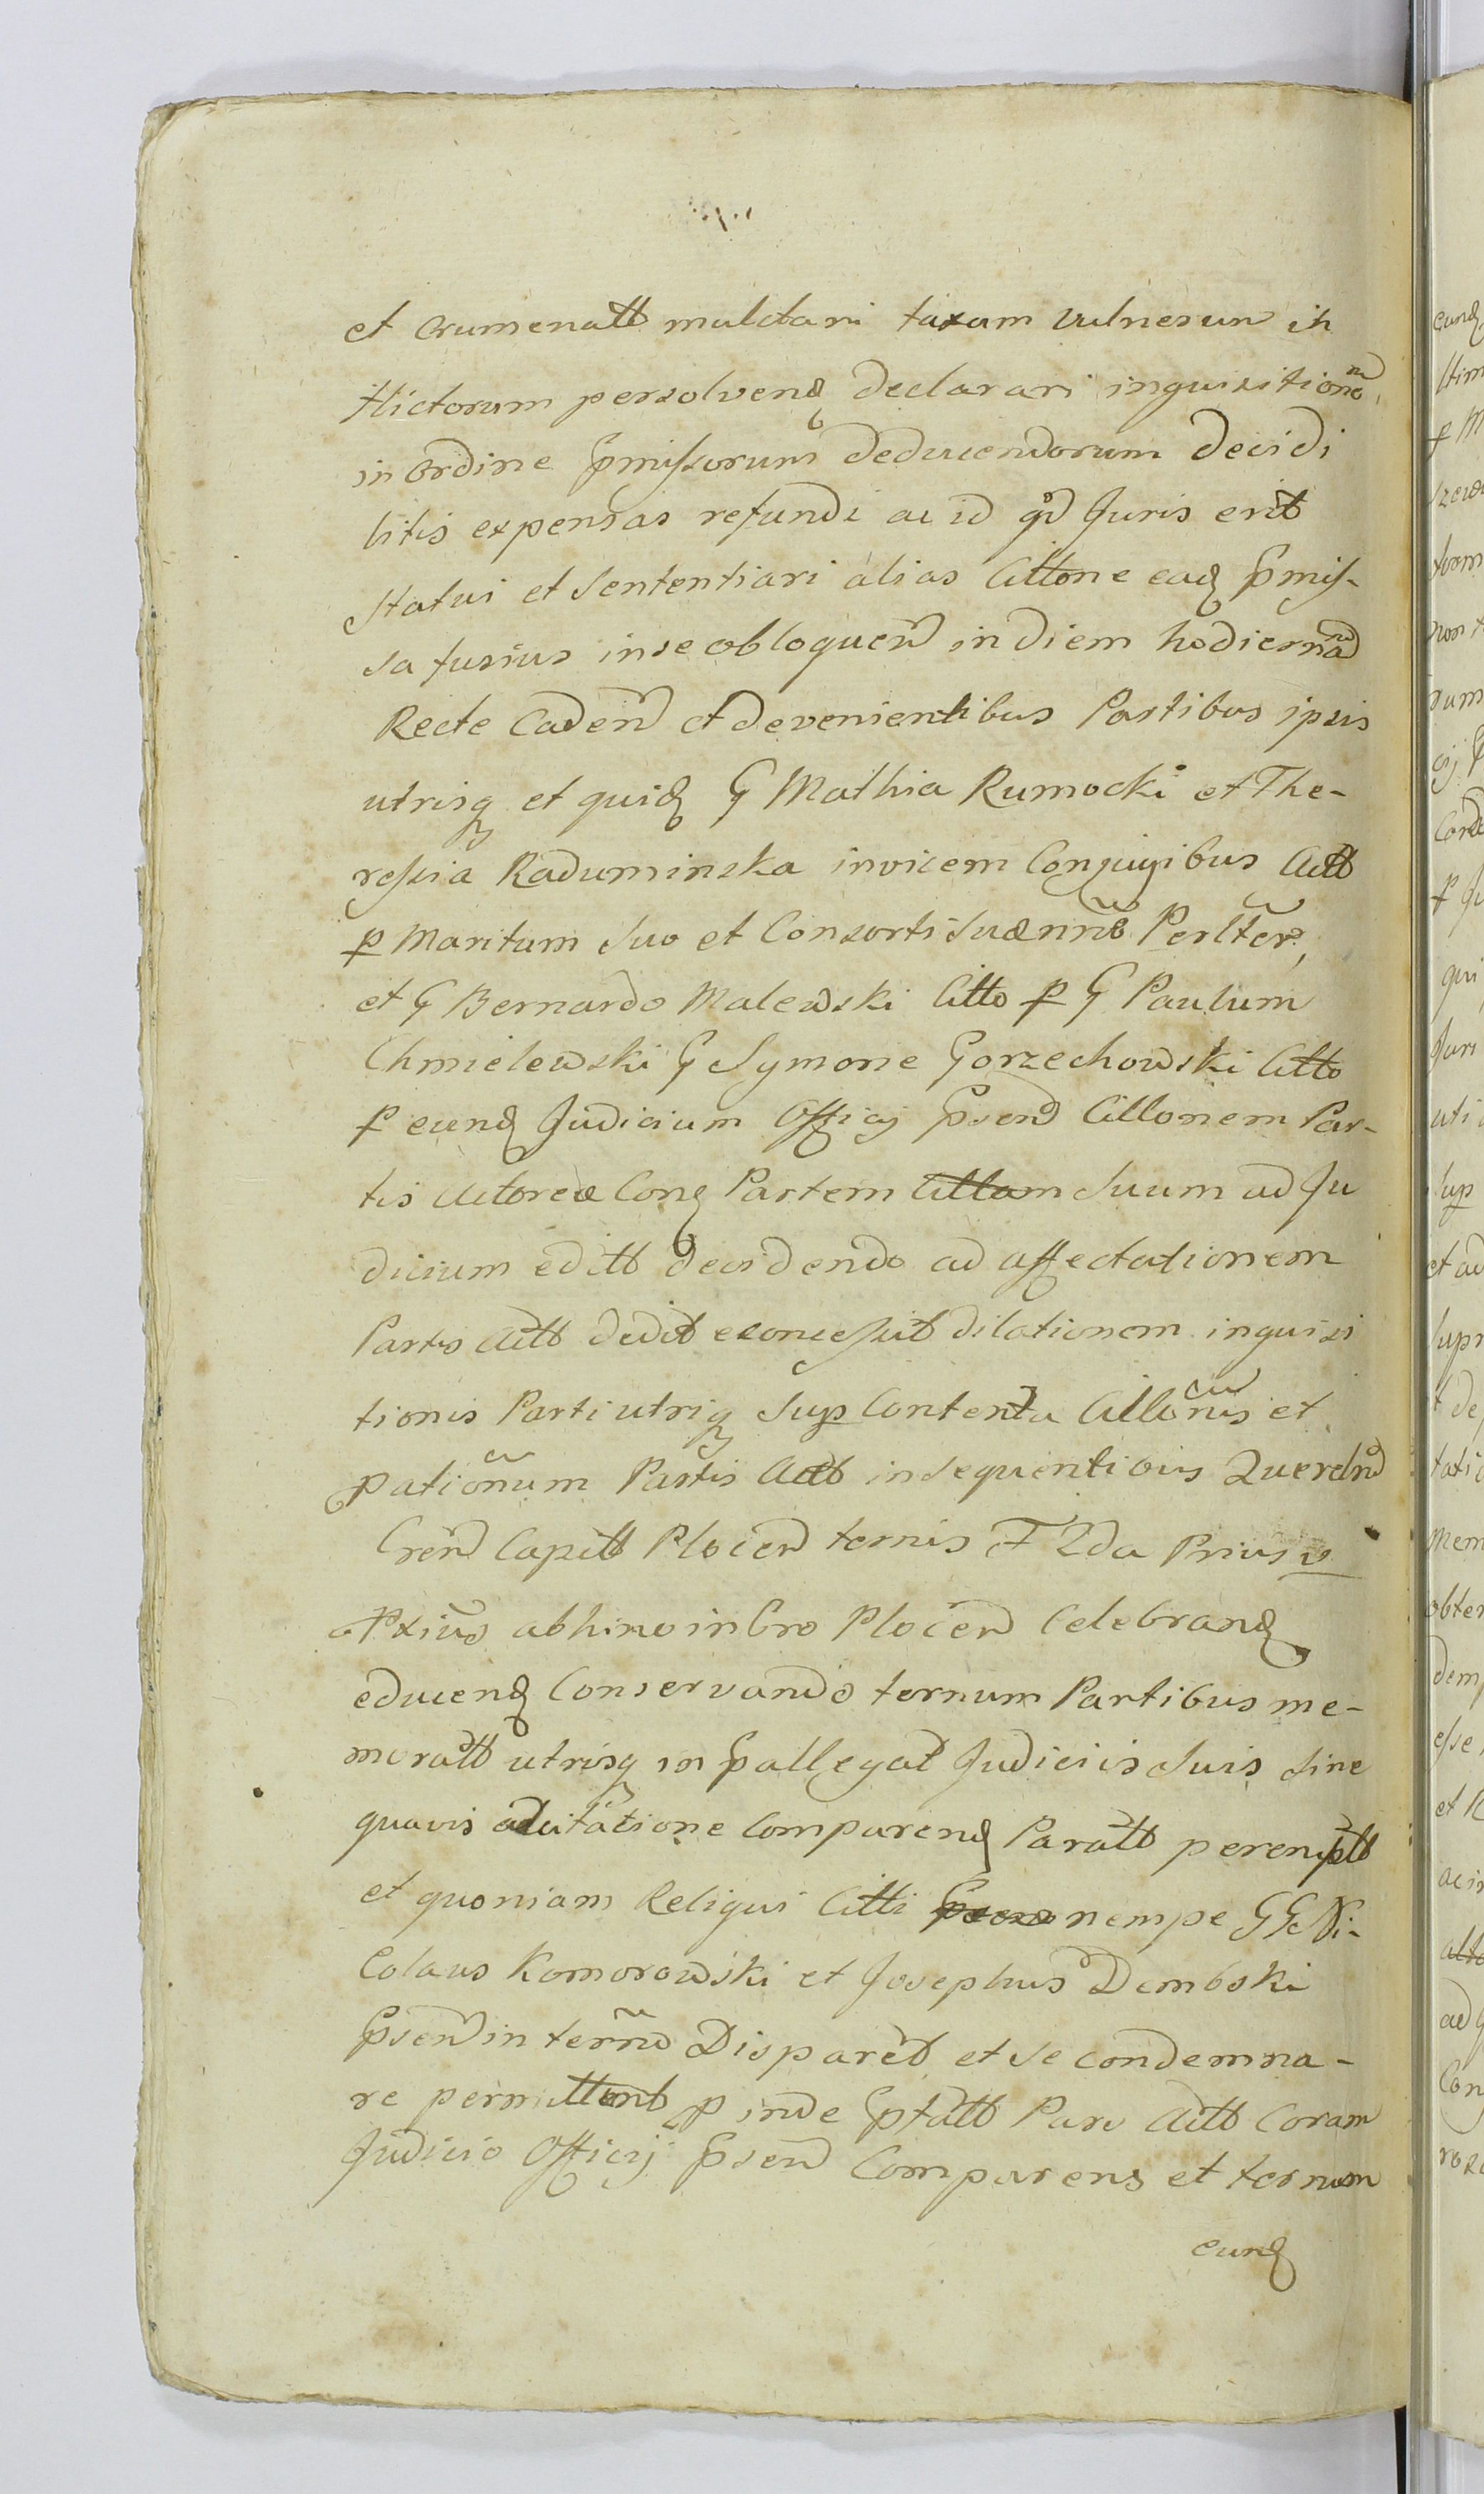 et crumenatt mulctari taxam vulnerum in
flictorum persolvend declarari inquisitionem
in ordine pmissorum deducendorum decidi
litis expensas refundi ac id qd Juris erit
statui et sententiari alias Cittone ead pmis-
sa fusius in se obloquen in diem hodiernam
Recte Caden et devenientibus Partibus ipsis
utrisq et quid G Mathia Rumocki et The-
ressia Raduminska invicem Conjugibus Actt
p Maritum suo et Consortis suæ nne Perlter,
et G Bernardo Malewski Citto p G Paulum
Chmielewski G Symone Gorzechowski Citto
p eund Judicium Officij psens Cittonem Par-
tis Actoreæ Cong Partem Cittam suum ad Ju
dicium editt decidendo ad affectationem
Partis Actt dedit econcessit dilationem inquisi
tionis Parti utriq sup Contenta Cittonis et
pationum Partis Actt in sequentibus Querelis
Gren Capitt Plocen ternis F 2da Prius v
Pxius abhinc in Cro Plocen Celebrand
educend Conservando ternum Partibus me-
moratt utrisq in pallegat Judiciis suis sine
quavis adcitatione Comparend Paratt peremptt
et quoniam Reliqui Citti nempe GG Ni-
Colaus Komorowski et Josephus Dembski
psen in termo Disparet et se condemna-
re permittent p inde ptatt Pars Actt Coram
Judicio Officij psen Comparens et ternum
eund